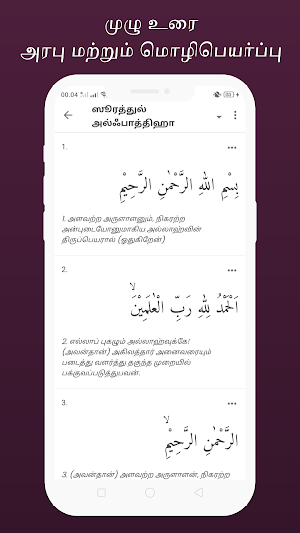 முழு உரை
அரபு மற்றும் மொழிபெயர்ப்பு
00.04
ஸூரத்துல்
அல்ஃபாத்திஹா
1.
بِسْمِ اللهِ الرَّحْمٰنِ الرَّحِيْمِ
1. அளவற்ற அருளாளனும், நிகரற்ற
அன்புடையோனுமாகிய அல்லாஹ்வின்
திருப்பெயரால் (ஓதுகிறேன்)
2.
اَلْحَمْدُ لِلّٰهِ رَبِّ الْعٰلَمِيْنَۙ
2. எல்லாப் புகழும் அல்லாஹ்வுக்கே!
(அவன்தான்) அகிலத்தார் அனைவரையும்
படைத்து வளர்த்து தகுந்த முறையில்
பக்குவப்படுத்துபவன்.
3.
الرَّحْمٰنِ الرَّحِيْمِۙ
3. (அவன்தான்) அளவற்ற அருளாளன், நிகரற்ற